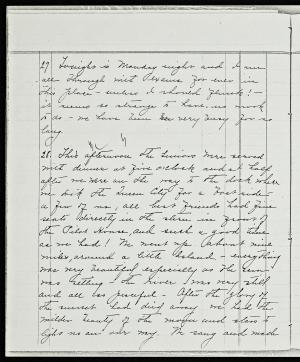 27 Tonight is Monday night and I am
all through with Exams for ever in
this place - unless I should flunk! -
it seems so strange to have no work
to do - we have been so very busy for so
long.
28. This afternoon the Seniors were served
with dinner at five o'clock and at half
after we were on the way to the dock where
we left the Queen City for a boat ride -
a few of us, all best friends had fine
seats directly in the stern in front of
the Pilot House and such a good time
as we had! We went up about nine
miles, around a little Island - everything
was very beautiful especially as the Sun
was setting - the River was very still
and all so peaceful - After the glory of
the sunset had died away we had the
milder beauty of the moon and star
light as our way. We sang and made